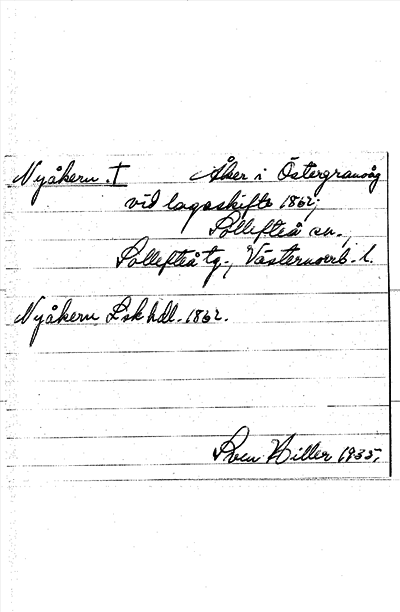 Nyåkern. † Åker i Östergransåg
vid lagaskifte 1862;
Sollefteå sn.,
Sollefteå tg., Västernorrl. l.
Nyåkern Lskhdl. 1862.
Sven Hiller 1935.